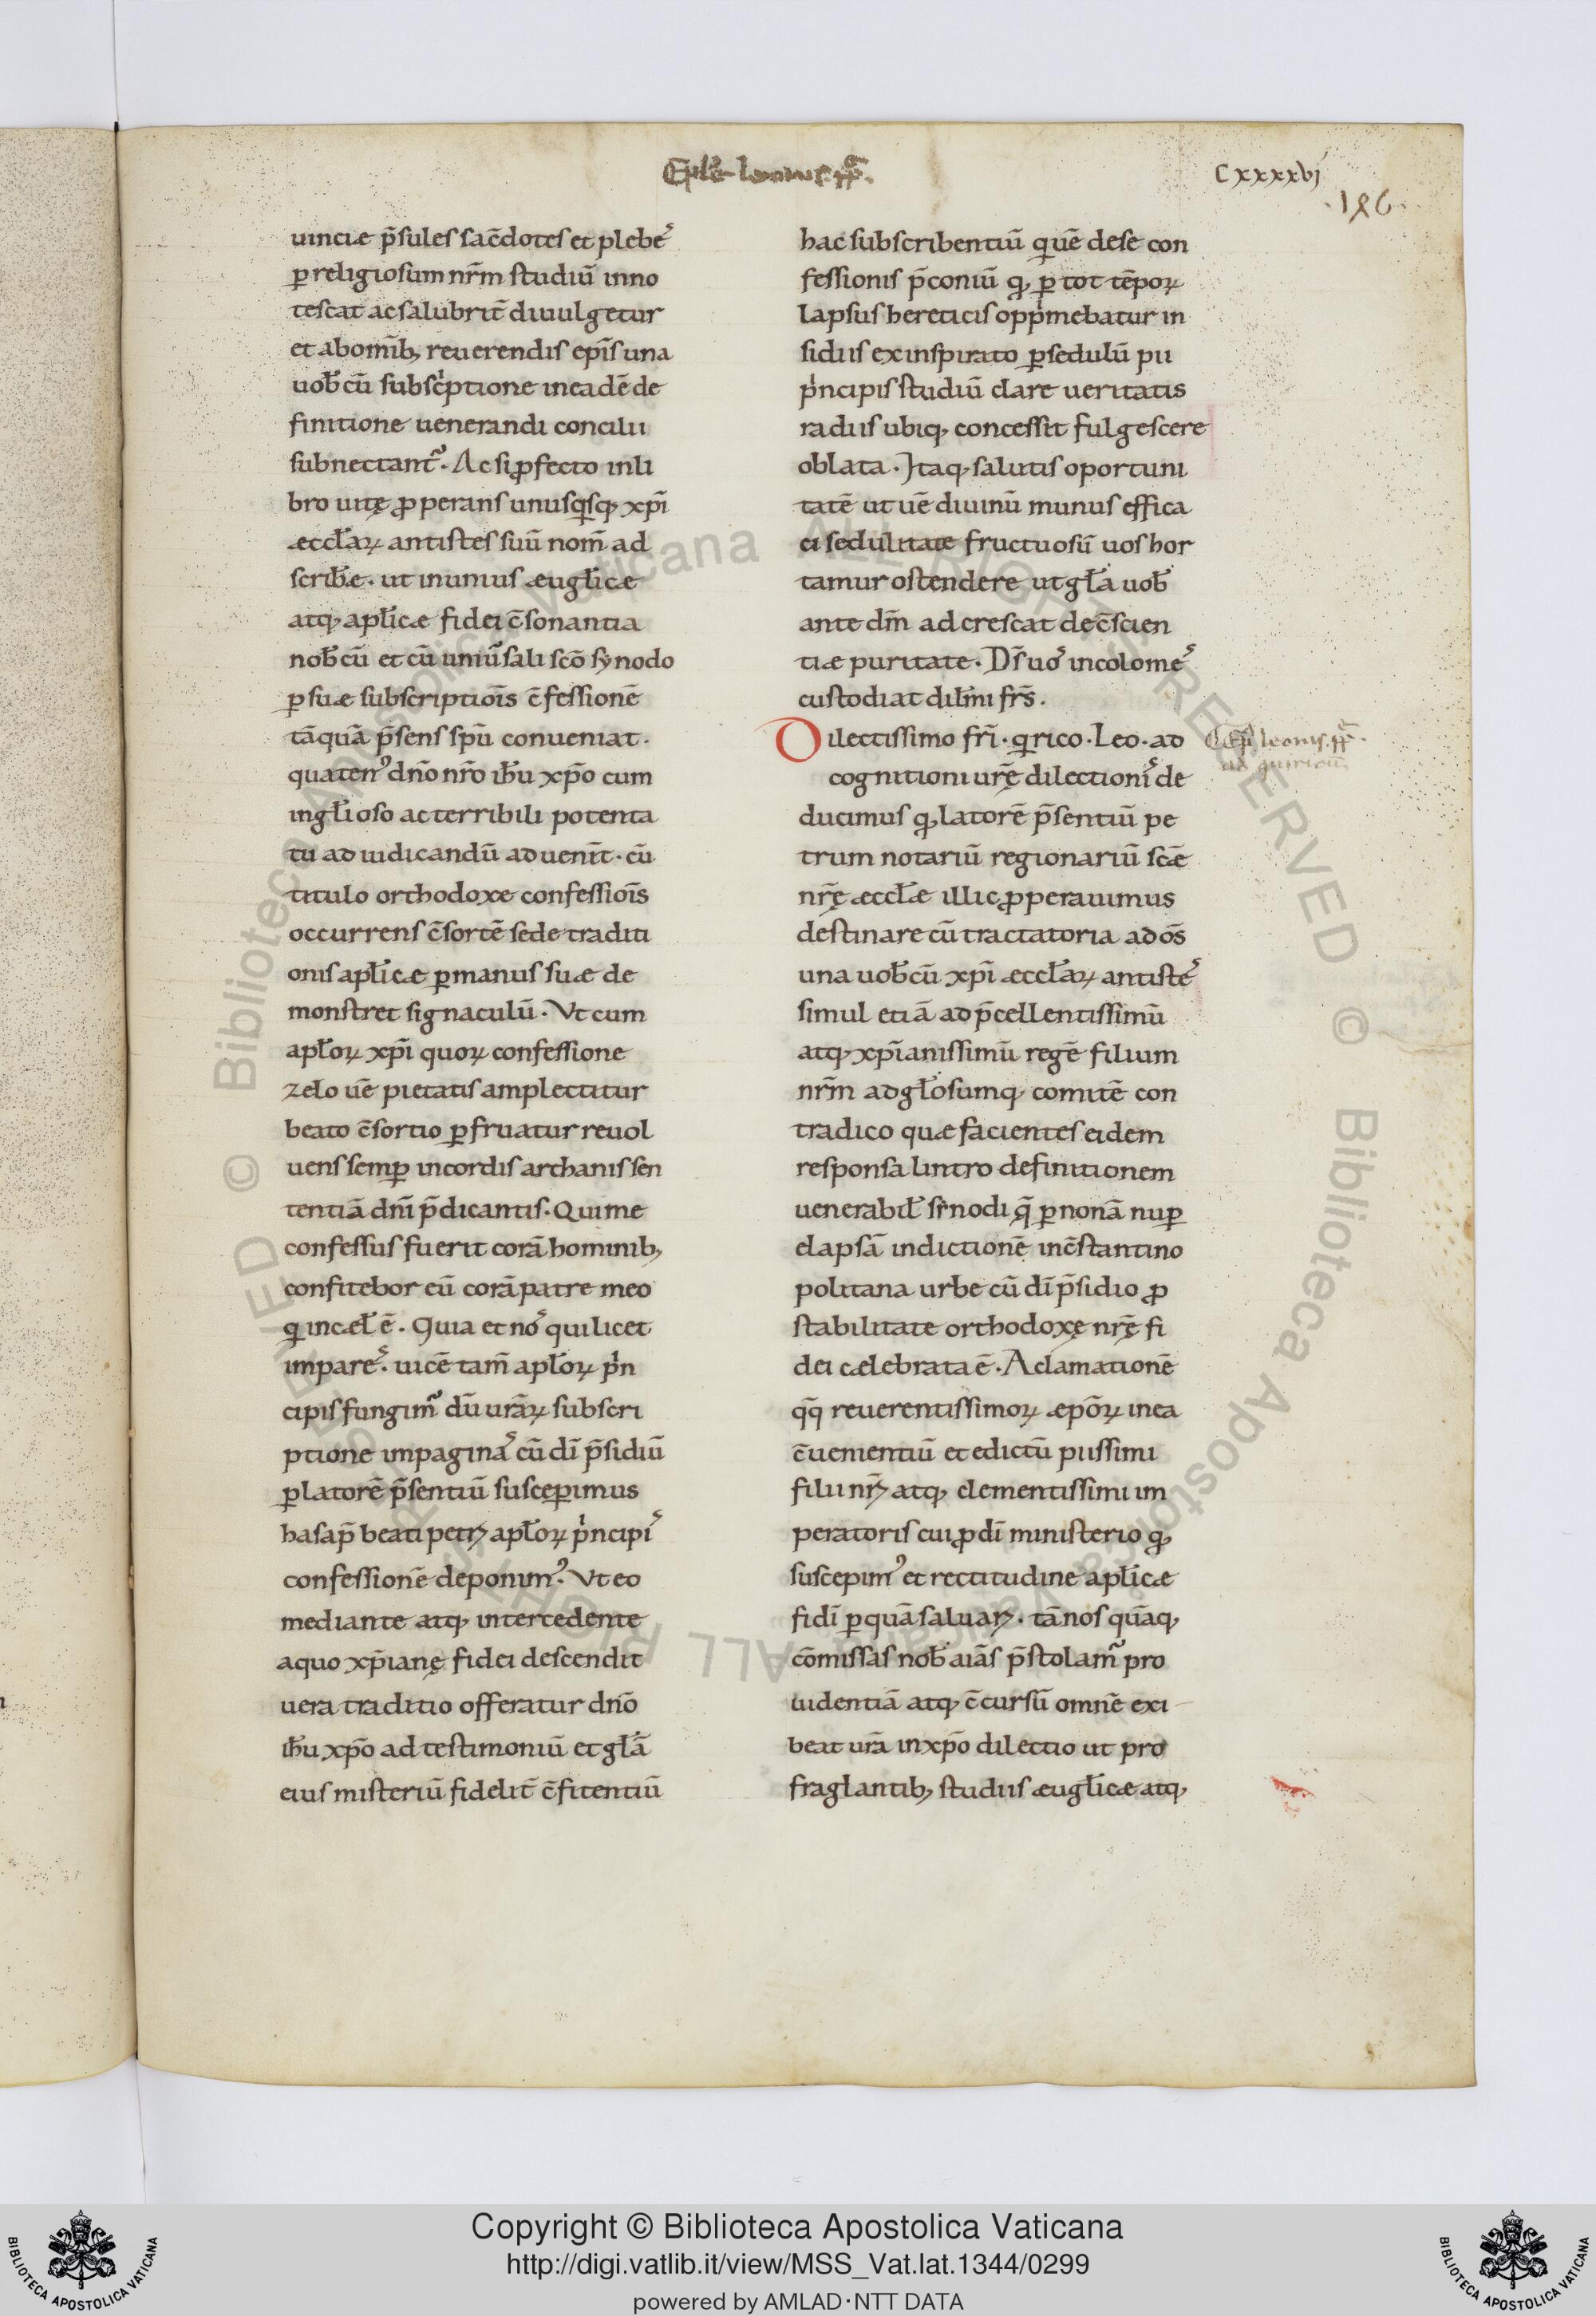 Epłe leonis pp̄.
Cxxxxvj
.186.
uinciæ p̄sules sac̄dotes et plebeˢ
ꝑ religiosum nr̄m studiū inno
tescat ac salubrit̄ diuulgetur
et abomīb; reuerendis ep̄is una
uob̄cū subsc̍ptione ineadē de
finitione uenerandi concilii
subnectant᷑. Ac si ꝓfecto inli
bro uitę ꝓperans unusq̍sq; xp̄i
æccl̄aꝝ antistes suū nom̄ ad
scrib̄æ. ut inunius æugl̄icæ
atq; apl̄icæ fidei c̄sonantia
nob̄cū et cū uniūsali sc̄o synodo
ꝑ suæ subscriptiōis c̄fessionē
tāquā p̄sens sp̄u conueniat.
quatenꝰ dn̄o nr̄o ih̄u xp̄o cum
ingl̄ioso ac terribili potenta
tu ad iudicandū aduenīt. cū
titulo orthodoxe confessiōis
occurrens c̄sortē sede traditi
onis apl̄icæ ꝑ manus suæ de
monstret signaculū. Vt cum
apl̄oꝝ xp̄i quoꝝ confessione
zelo uē pietatis amplectitur
beato c̄sortio ꝑfruatur reuol
uens semꝑ incordis archanis sen
tentiā dn̄i p̄dicantis. Qui me
confessus fuerit corā hominib;
confitebor eū corā patre meo
q̍ incæl̄ ē. Quia et noˢ qui licet
impareˢ. uicē tam̄ apl̄oꝝ p̍n
cipis fungim᷑ dū ur̄aꝝ subscri
ptione inpaginaˢ cū dī p̄sidiū
ꝑ latorē p̄sentiū susceꝑimus
hasap̄ beati petꝝ apl̄oꝝ p̍ncipiˢ
confessionē deponimꝰ. Vt eo
mediante atq; intercedente
aquo xp̄ianę fidei descendit
uera traditio offeratur dn̄o
ih̄u xp̄o ad testimoniū et gl̄ā
eius misteriū fidelit̄ c̄fitentiū
hac subscribentiū quē dese con
fessionis p̄coniū q; ꝑ tot tēpoꝝ
lapsus hereticis opp̍mebatur in
sidiis ex inspirato ꝑ sedulū pii
p̍ncipis studiū clare ueritatis
radiis ubiq; concessit fulgescere
oblata. Itaq; salutis oportuni
tatē ut uē diuinū munus effica
ci sedulitate fructuosū uos hor
tamur ostendere ut gl̄a uob̄
ante dm̄ adcrescat de c̄scien
tiæ puritate. Ds̄ uoˢ incolomeˢ
custodiat dil̄mi frs̄.
Dilectissimo fr̄i. q̍rico. Leo. ad
cognitioni ur̄ę dilectioniˢ de
ducimus q; latorē p̄sentiū pe
trum notariū regionariū sc̄e
nr̄ę æccl̄æ illic ꝓperauimus
destinare cū tractatoria ad ōs
una uob̄cū xp̄i æccl̄aꝝ antisteˢ
simul etiā ad p̄cellentissimū
atq; xp̄ianissimū regē filium
nr̄m ad gl̄osumq; comitē con
tradico quæ facientes eidem
responsal intro definitionem
uenerabil̄ sinodi q̄ ꝑ nonā nuꝑ
elapsā indictionē in c̄stantino
politana urbe cū dī p̄sidio ꝓ
stabilitate orthodoxę nr̄ę fi
dei cælebrata ē. Aclamationē
qq̄ reuerentissimoꝝ æpōꝝ inea
c̄uenientiū et edictū piissimi
filii nr̄ꝝ atq; clementissimi im
peratoris cui ꝓ dī ministerio q;
suscepimꝰ et rectitudine apl̄icæ
fidī ꝑ quā saluaꝝ. tā nos quāq;
cōmissas nob̄ aiās p̄stolam᷑ pro
uidentiā atq; c̄cursū omnē exi
beat ur̄a inxp̄o dilectio ut pro
fraglantib; studiis æugl̄icæ atq;
Ep̄l leonis. pp̄.
ad quiricū
© Biblioteca Apostolica Vaticana ALL RIGHTS RESERVED © Biblioteca Apostolica Vaticana ALL RIGHTS RESERVED
Copyright © Biblioteca Apostolica Vaticana
http://digi.vatlib.it/view/MSS_Vat.lat.1344/0299
powered by AMLAD·NTT DATA
BIBLIOTECA APOSTOLICA VATICANA
BIBLIOTECA APOSTOLICA VATICANA